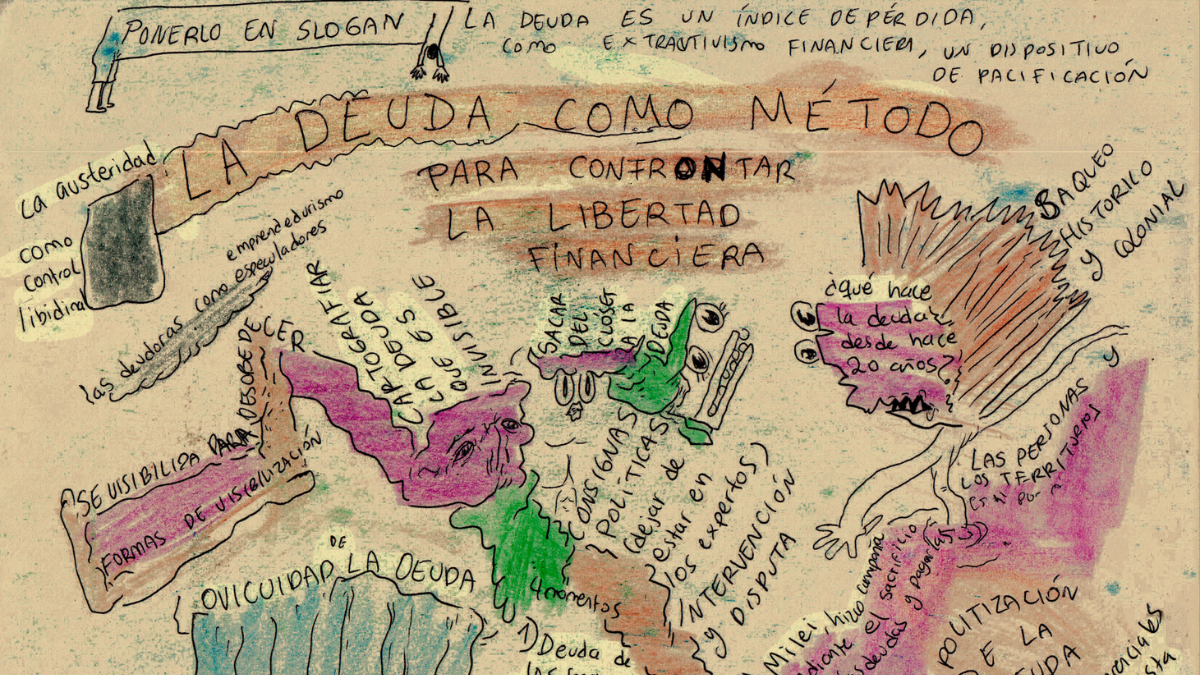 PONERLO EN SLOGAN
LA DEUDA ES UN ÍNDICE DE PÉRDIDA,
COMO EXTRAUTIVISMO FINANCIERA, UN DISPOSITIVO
DE PACIFICACIÓN
LA DEUDA COMO MÉTODO
PARA CONFRONTAR
LA LIBERTAD
FINANCIERA
La austeridad
como
control
libidinal
las deudoras como especuladores
emprendedurismo
BAQUEO
HISTORICO
Y COLONIAL
¿qué hace
la deuda
desde hace
20 años?
SACAR
DEL
CLOSET
A LA
DEUDA
CARTOGRAFIAR
LA DEUDA
QUE ES
INVISIBLE
SE VISIBILIZA PARA DESOBEDECER
FORMAS DE VISIBILIZACIÓN
CONSIGNAS
POLÍTICAS
(dejar de
estar en
los expertos)
INTERVENCIÓN
Y DISPUTA
LAS PERSONAS Y
LOS TERRITORIOS
OVICUIDAD DE LA DEUDA
4 momentos
1) Deuda de
Milei hizo campaña
el sacrificio
deudas y pagar
POLITIZACIÓN
DE LA
DEUDA